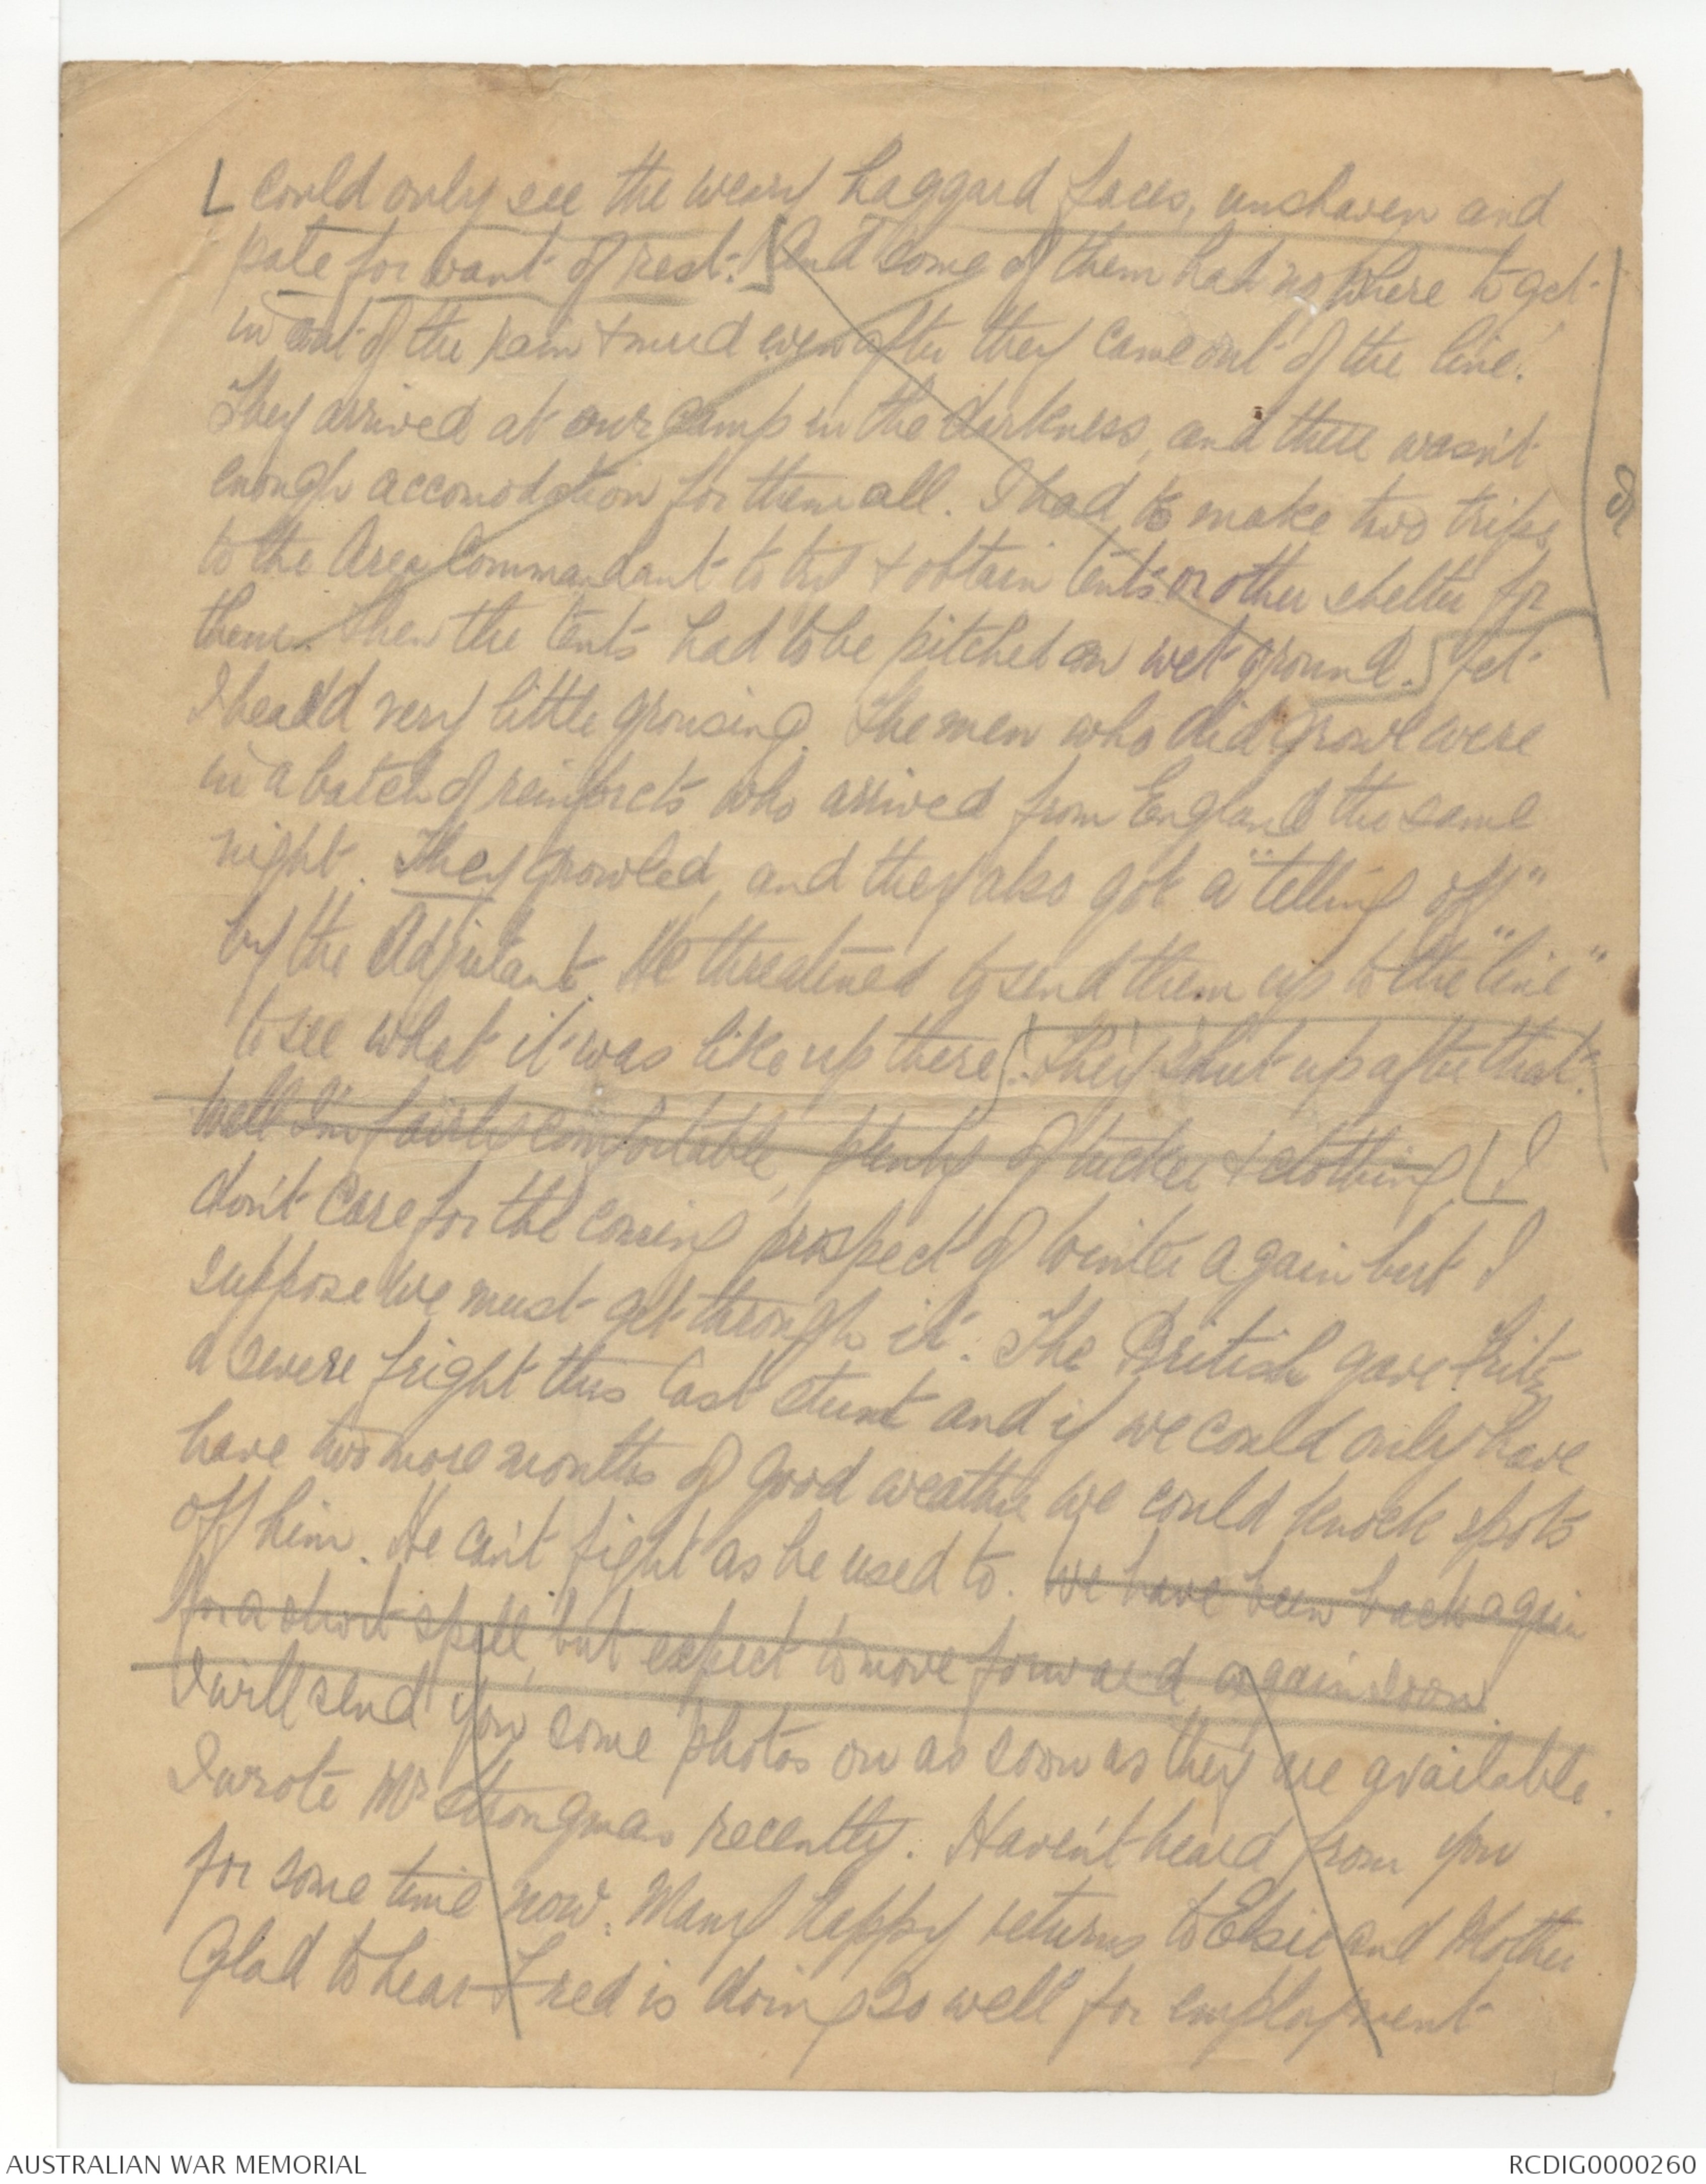 could only see the weary haggard faces, unshaven and
pale for want of rest. And some of them had no where to get
in out of the rain + mud even after they came out of the line.
They arrived at our camp in the darkness, and there wasn't
enough accomodation for them all. I had to make two trips
to the Area Commandant to try + obtain tents or other shelter for
them. Then the tents had to be pitched on wet ground. Yet
I heard very little grousing. The men who did growl were
in a batch of reinforcts who arrived from England the same
night. They growled, and they also got a "telling off"
by the Adjutant. He threatened to send them up to the "line"
to see what it was like up there. They shut up after that.
Well I'm fairly comfortable, plenty of tucker + clothing. I
don't care for the coming prospect of winter again but I
suppose we must get through it. The British gave Fritz
a severe fright this last stunt and if we could only have
have two more months of good weather we could knock spots
off him. He can't fight as he used to. We have been back again
for a short spell, but expect to move forward again soon.
I will send you some photos on as soon as they are available.
I wrote Mr Strongman recently. Haven't heard from you
for some time now. Many happy returns to Elsie and Mother.
Glad to hear Fred is doing so well for employment
AUSTRALIAN WAR MEMORIAL
RCDIG0000260